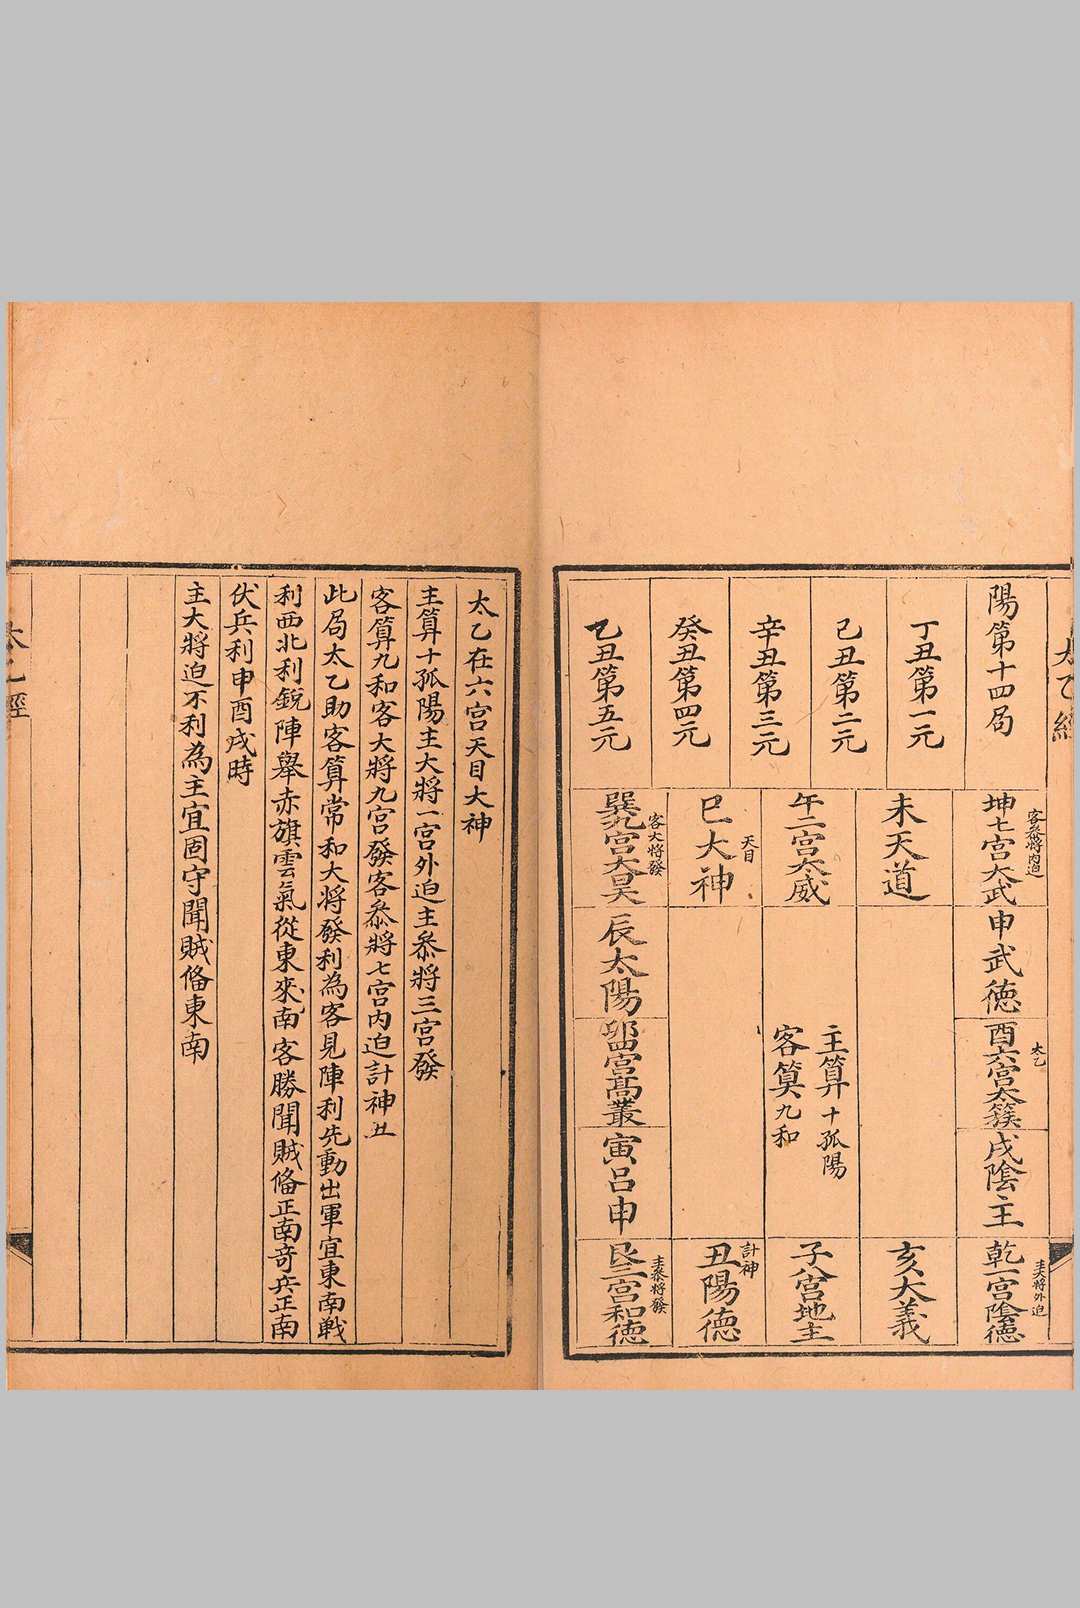 太乙經
陽第十四局
丁丑第一元
己丑第二元
辛丑第三元
癸丑第四元
乙丑第五元
客叅將內迫
坤七宮大武
未天道
午二宮大威
天目
巳大神
客大將發
巽九宮大炅
申武德
辰太陽
太乙
酉六宮太簇
主算十孤陽
客算九和
卯四宮高叢
戌陰主
寅呂申
主大將外迫
乾一宮陰德
亥大義
子八宮地主
計神
丑陽德
主叅將發
艮三宮和德
太乙在六宮天目大神
主算十孤陽主大將一宮外迫主叅將三宮發
客算九和客大將九宮發客叅將七宮內迫計神丑
此局太乙助客算常和大將發利為客見陣利先動出軍宜東南戰
利西北利銳陣舉赤旗雲氣從東來南客勝聞賊俻正南奇兵正南
伏兵利申酉戌時
主大將迫不利為主宜固守聞賊俻東南
太乙經